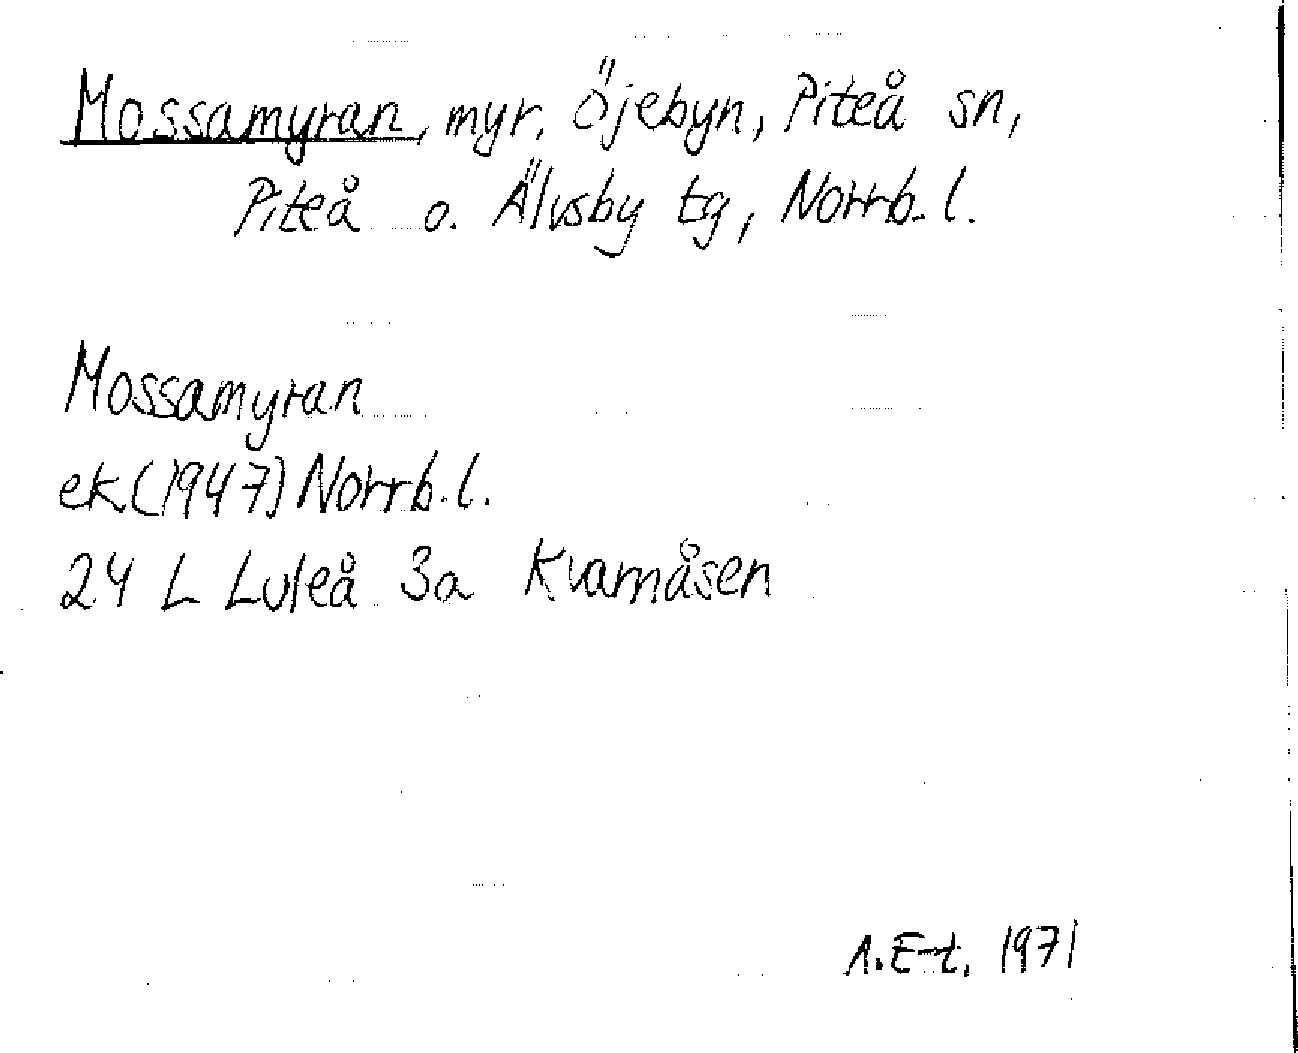 Mossamyran, myr, Öjebyn, Piteå sn,
Piteå o. Älvsby tg, Norrb. l.
Mossamyran
ek (1947) Norrb. l.
24 L Luleå 3a Kvarnåsen
A. E-t. 1971